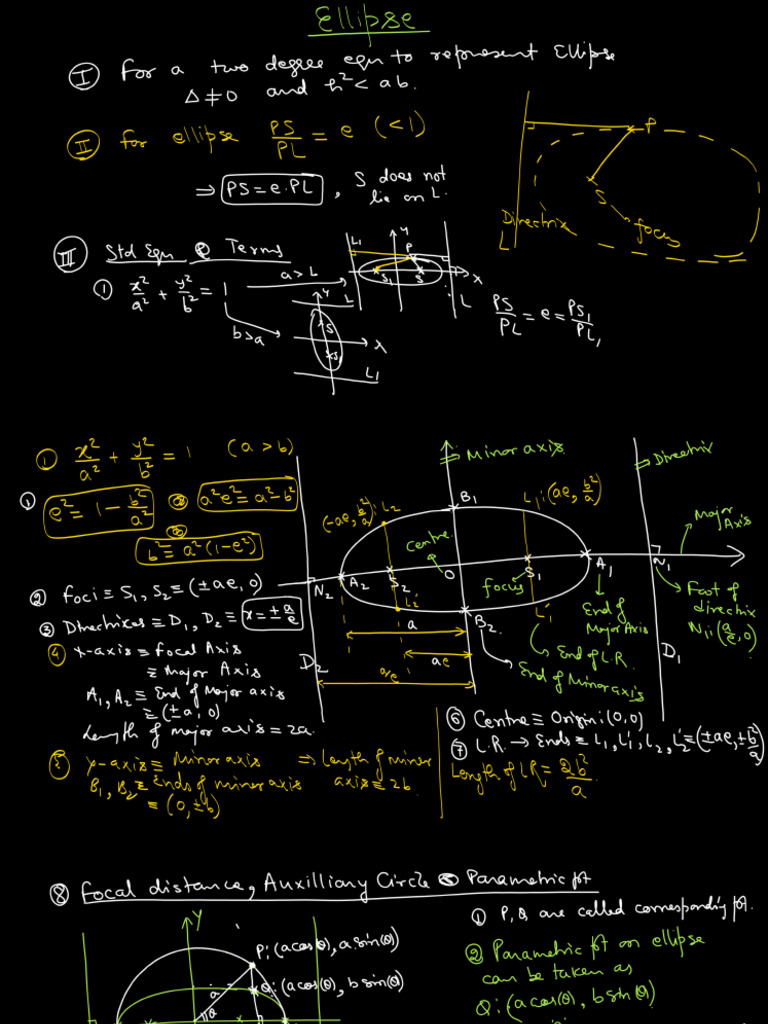 Ellipse
I For a two degree eqn to represent Ellipse
Δ ≠ 0 and h² < ab.
II For ellipse PS/PL = e (<1)
⇒ PS = e.PL , S does not
lie on L.
P
S
focus
Directrix
L
III Std Eqn & Terms
① x²/a² + y²/b² = 1
a > L
b > a
L₁ y P S₁ S X L
y L S S₁ X L₁
PS/PL = e = PS₁/PL₁
① x²/a² + y²/b² = 1 (a > b)
① e² = 1 - b²/a² a²e² = a² - b²
b² = a²(1-e²)
② foci ≡ S₁, S₂ ≡ (±ae, 0)
③ Directrixes ≡ D₁, D₂ ≡ x = ± a/e
④ x-axis ≡ Focal Axis
≡ Major Axis
A₁, A₂ ≡ End of Major axis
≡ (±a, 0)
Length of major axis = 2a.
⑤ y-axis ≡ Minor axis ⇒ Length of minor
axis = 2b.
B₁, B₂ ≡ Ends of minor axis
≡ (0, ±b)
Minor axis
Directrix
Major
Axis
(-ae, b²/a) L₂
B₁
L₁: (ae, b²/a)
Centre
focus
N₂ A₂ S₂ O S₁ A₁ N₁
L₂' B₂ L₁'
a
ae
a/e
D₂
D₁
End of
Major Axis
Foot of
directrix
N₁: (a/e, 0)
End of L.R.
End of Minor axis
⑥ Centre ≡ Origin: (0,0)
⑦ L.R. → Ends ≡ L₁, L₁', L₂, L₂' ≡ (±ae, ± b²/a)
Length of LR = 2b²/a.
⑧ Focal distance, Auxilliary Circle & Parametric pt
Y
P: (a cos(θ), a sin(θ))
Q: (a cos(θ), b sin(θ))
a
① P, Q are called corresponding pt.
② Parametric pt on ellipse
can be taken as
Q: (a cos(θ), b sin θ)